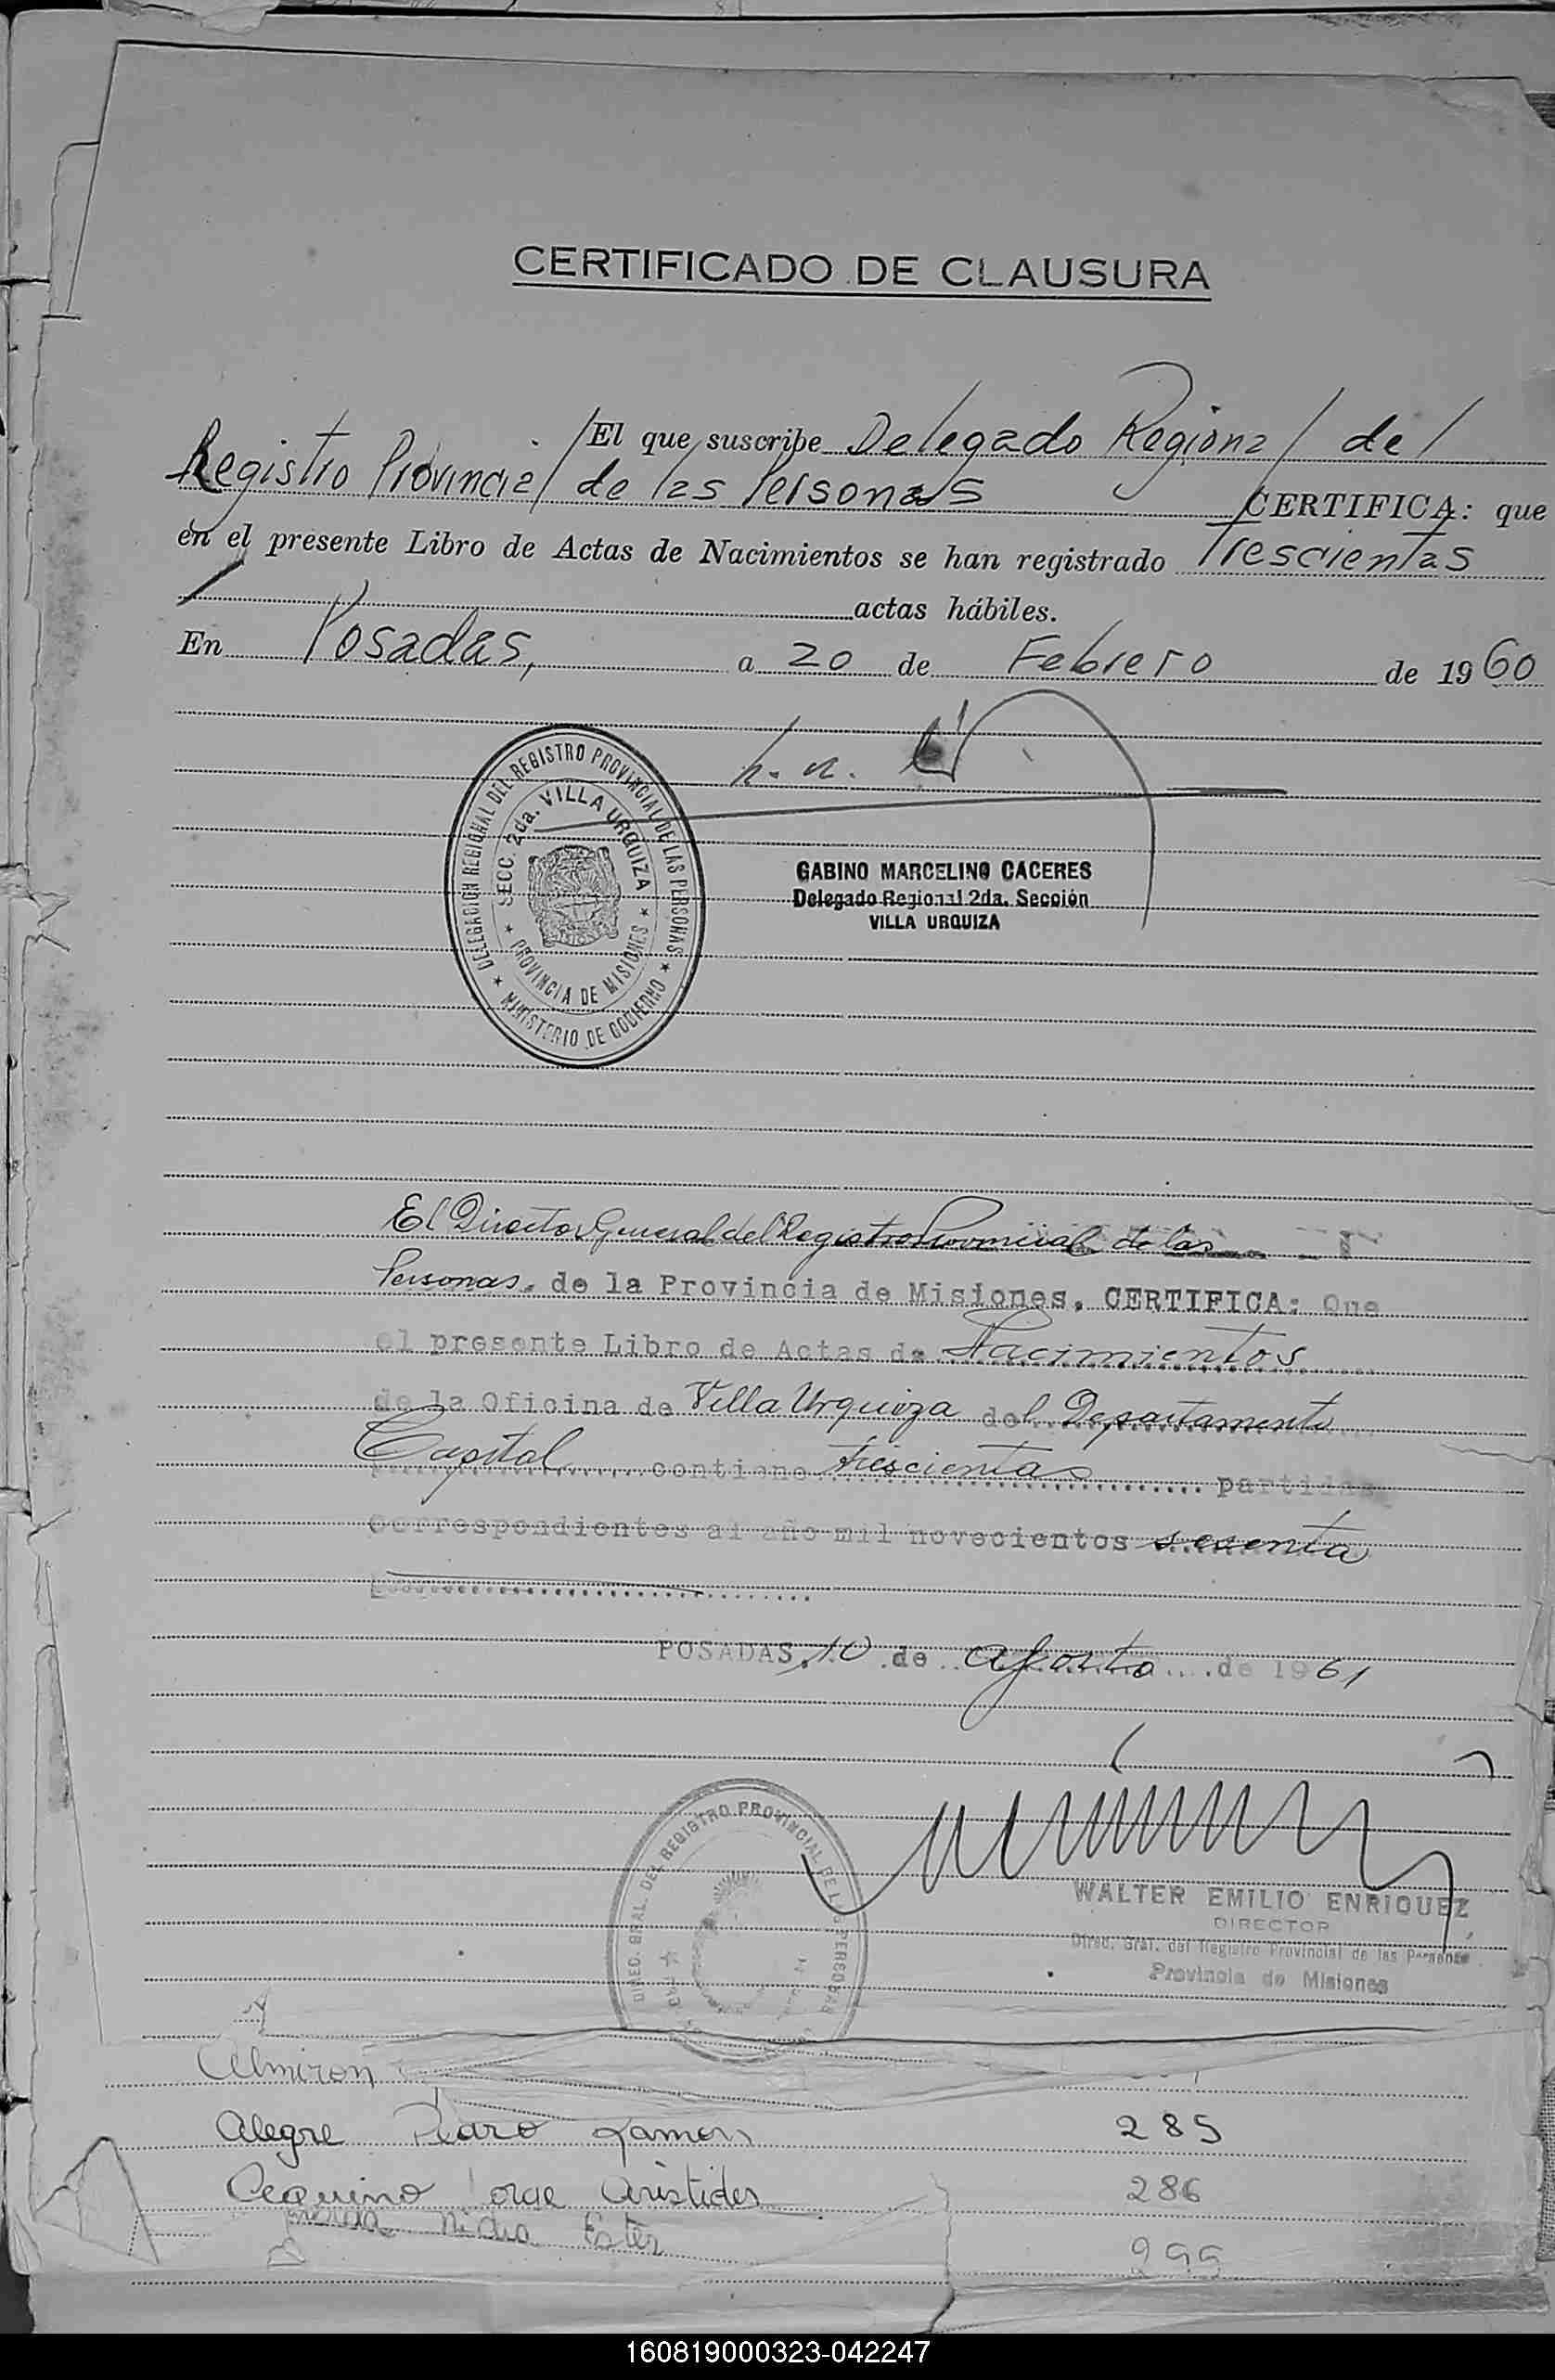 CERTIFICADO DE CLAUSURA
El que suscribe Delegado Regional del
Registro Provincial de las Personas CERTIFICA: que
en el presente Libro de Actas de Nacimientos se han registrado Trescientas
actas hábiles.
En Posadas, a 20 de Febrero de 1960
DELEGACION REGIONAL DEL REGISTRO PROVINCIAL DE LAS PERSONAS
SECC. 2da. VILLA URQUIZA
PROVINCIA DE MISIONES
MINISTERIO DE GOBIERNO
GABINO MARCELINO CACERES
Delegado Regional 2da. Sección
VILLA URQUIZA
El Director General del Registro Provincial de las
Personas, de la Provincia de Misiones, CERTIFICA: Que
el presente Libro de Actas de Nacimientos
de la Oficina de Villa Urquiza del Departamento
Capital contiene trescientas partidas
correspondientes al año mil novecientos sesenta
POSADAS, 10 de agosto de 1961
DIREC. GRAL. DEL REGISTRO PROVINCIAL DE LAS PERSONAS
WALTER EMILIO ENRIQUEZ
DIRECTOR
Direc. Gral. del Registro Provincial de las Personas
Provincia de Misiones
Almiron
Alegre Pedro Ramon 285
Aequino Jorge Aristides 286
Nidia Ester 299
160819000323-042247